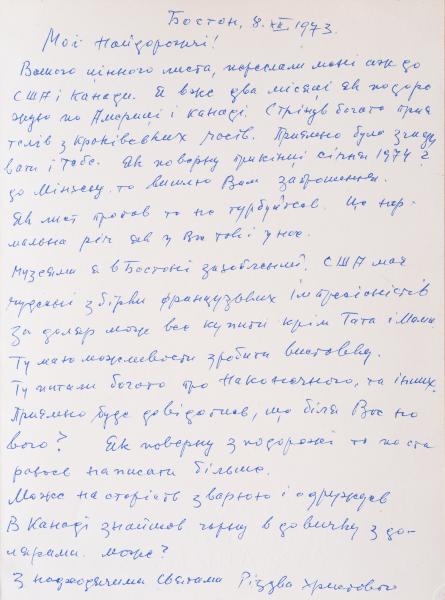 Бостон, 8.XII.1973.
Мої Найдорожчі!
Вашого цінного листа, переслали мені аж до
США і Канади. Я вже два місяці як подоро
жую по Америці і Канаді. Стрінув богато прия
телів з краківських часів. Приємно було згаду
вати і Тебе. Як поверну при кінці січня 1974 г
до Мінхену то вишлю Вам запрошення.
Як лист пропав то не турбуйтсв. Це нор-
мальна річ як у Вас такі у нас.
Музеями я в Бостоні захоблений. США має
чудесні збірки французових імпресіоністів
за доляр може все купити крім Тата і Мами
Ту маю можливости зробити виставку.
Ту питали богато про Наконечного, та інших.
Приємно буде довідатись, що біля Вас но
вого? Як поверну з подорожі то поста
раюсь написати більше.
Може на старість зварюю і одружаюсь
В Канаді знайшов гарну вдовичку з до-
лярами. може?
З надходячими Святами Різдва Христового